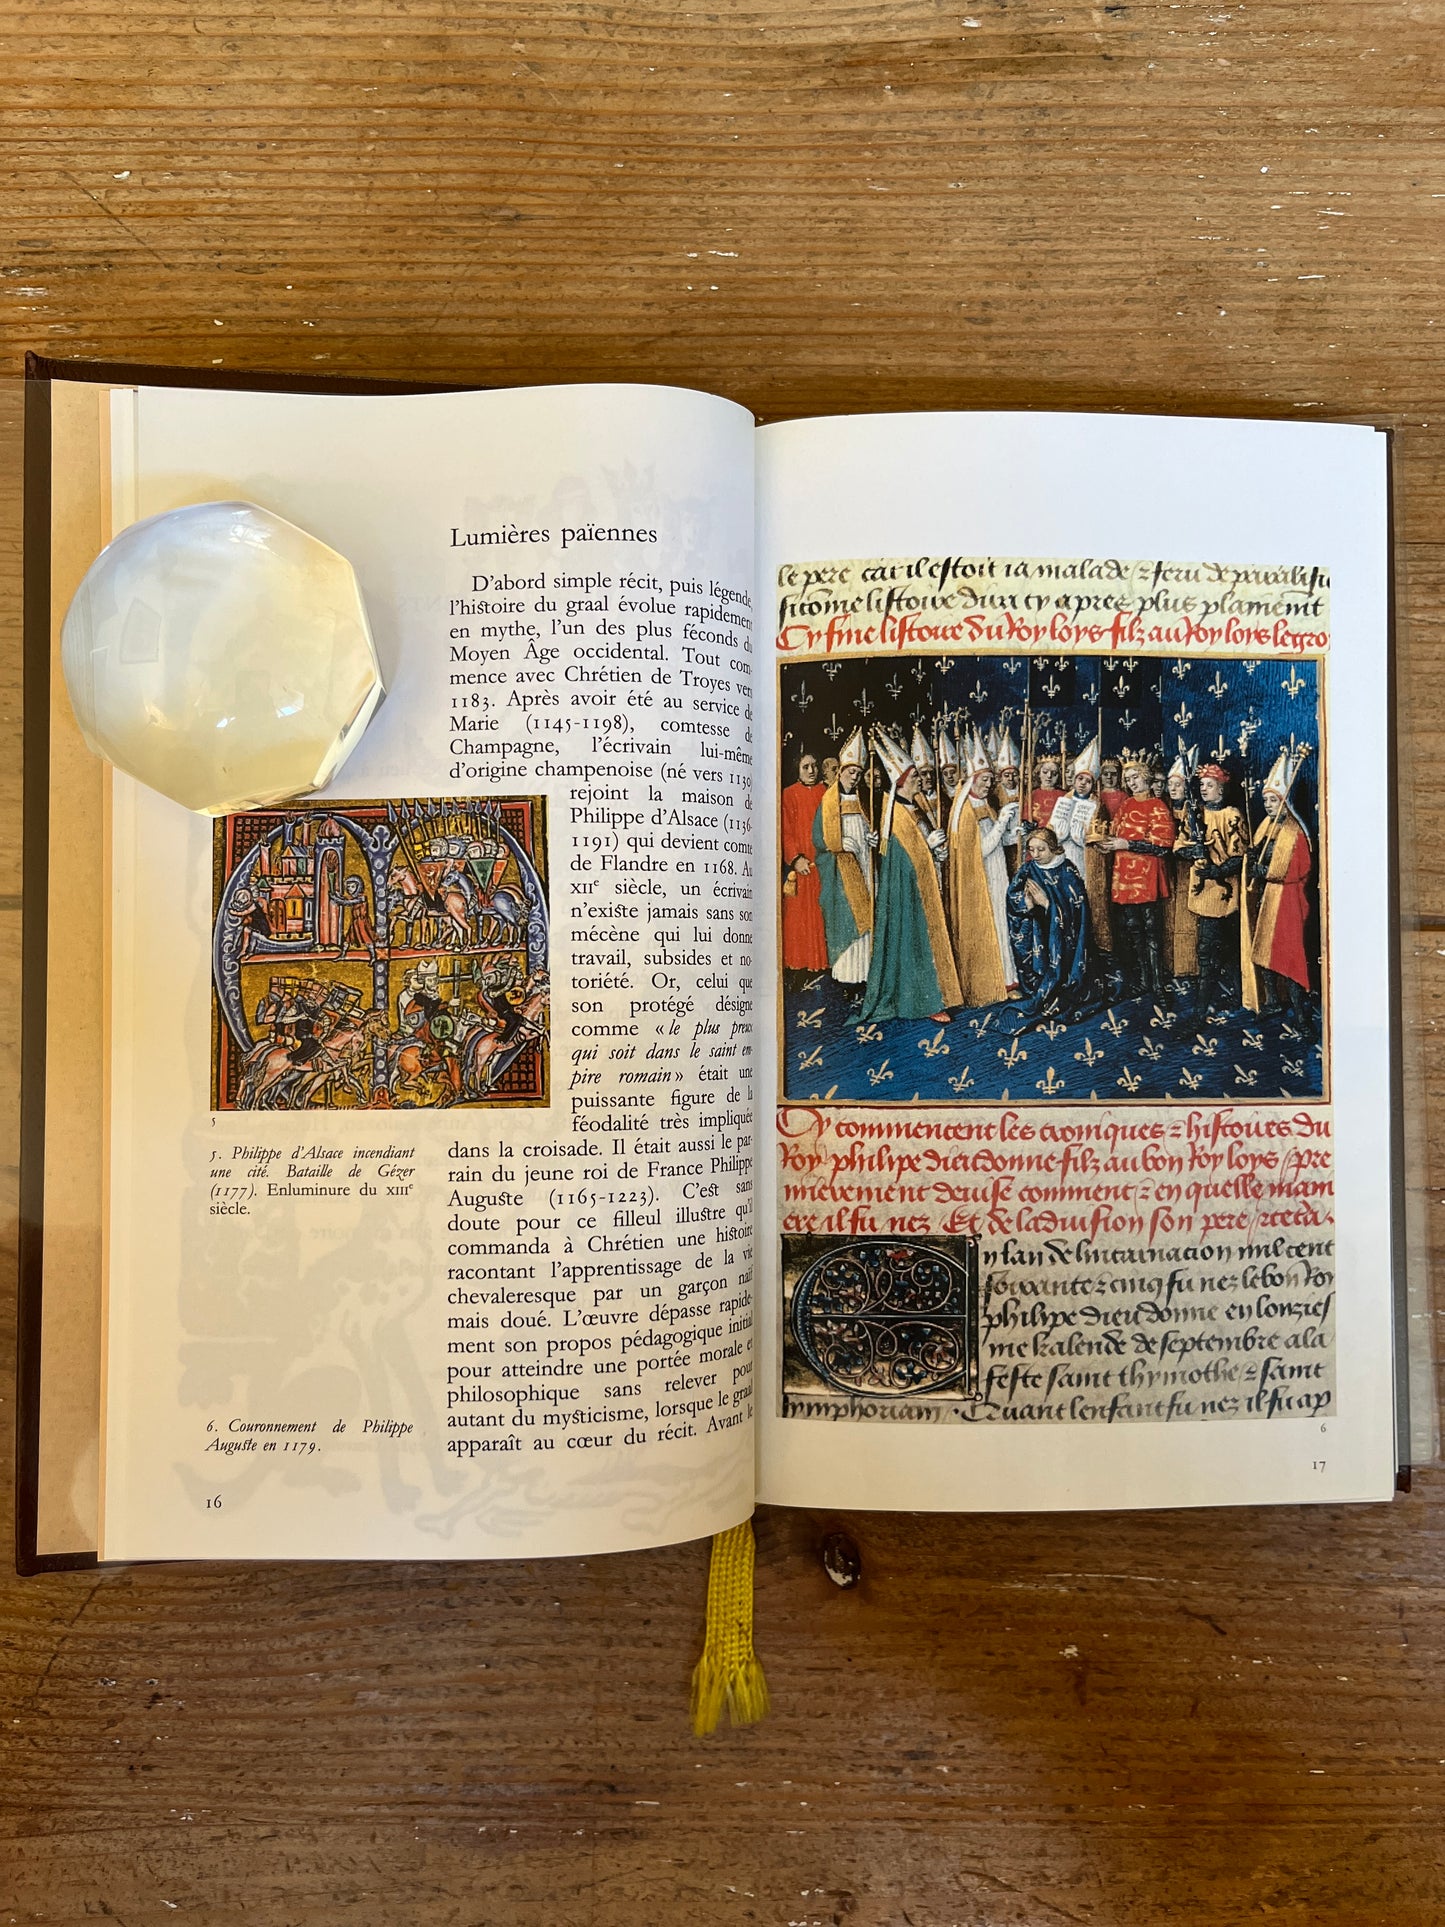 Lumières païennes
D'abord simple récit, puis légende,
l'histoire du graal évolue rapidement
en mythe, l'un des plus féconds du
Moyen Âge occidental. Tout com-
mence avec Chrétien de Troyes vers
1183. Après avoir été au service de
Marie (1145-1198), comtesse de
Champagne, l'écrivain lui-même
d'origine champenoise (né vers 1130)
rejoint la maison de
Philippe d'Alsace (1136-
1191) qui devient comte
de Flandre en 1168. Au
XIIe siècle, un écrivain
n'existe jamais sans son
mécène qui lui donne
travail, subsides et no-
toriété. Or, celui que
son protégé désigne
comme « le plus preux
qui soit dans le saint em-
pire romain » était une
puissante figure de la
féodalité très impliquée
dans la croisade. Il était aussi le par-
rain du jeune roi de France Philippe
Auguste (1165-1223). C'est sans
doute pour ce filleul illustre qu'il
commanda à Chrétien une histoire
racontant l'apprentissage de la vie
chevaleresque par un garçon naïf
mais doué. L'œuvre dépasse rapide-
ment son propos pédagogique initial
pour atteindre une portée morale et
philosophique sans relever pour
autant du mysticisme, lorsque le graal
apparaît au cœur du récit. Avant le
5
5. Philippe d'Alsace incendiant
une cité. Bataille de Gézer
(1177). Enluminure du XIIIe
siècle.
6. Couronnement de Philippe
Auguste en 1179.
16
le pere car il estoit ia malade & feru de
si come listoire dira cy apres plus plainement
Cy fine listoire du Roy loys filz au Roy loys le gro
Cy commencent les croniques & histoires du
Roy philipe dieudonne filz au bon Roy loys pre
mierement devise comment & en quelle mani
ere il fu nez Et de la division son pere
n lan de lincarnacion mil cent
soixante & cinq fu nez le bon Roy
philipe dieudonne en lonzies
me kalende de septembre a la
feste saint thymothe & saint
symphorian. Quant lenfant fu nez il fu ap
6
17